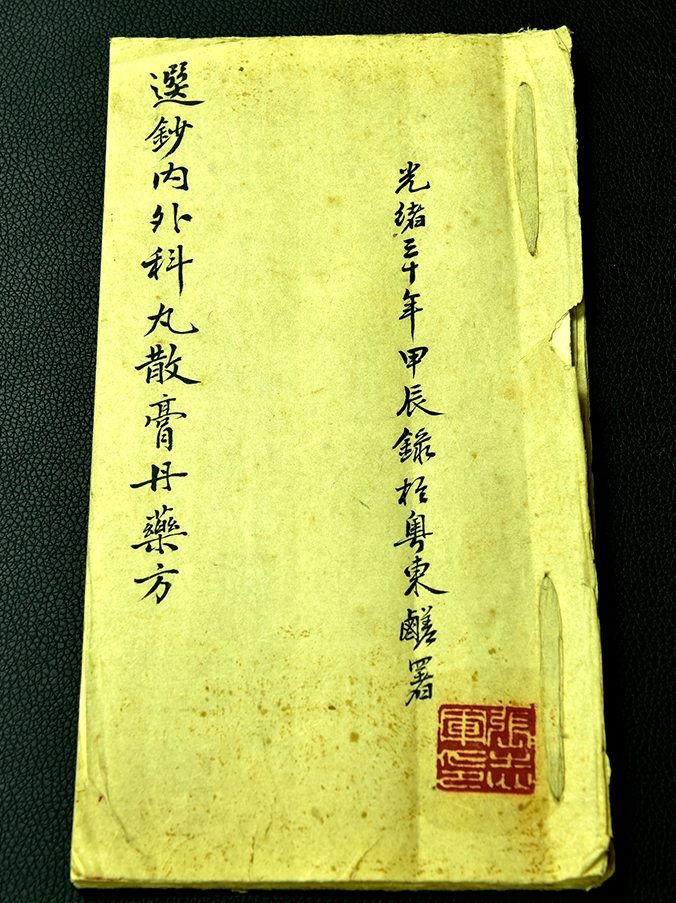 光緒三十年甲辰錄扵粤東鹺署
選鈔内外科丸散膏丹藥方
張志軍印